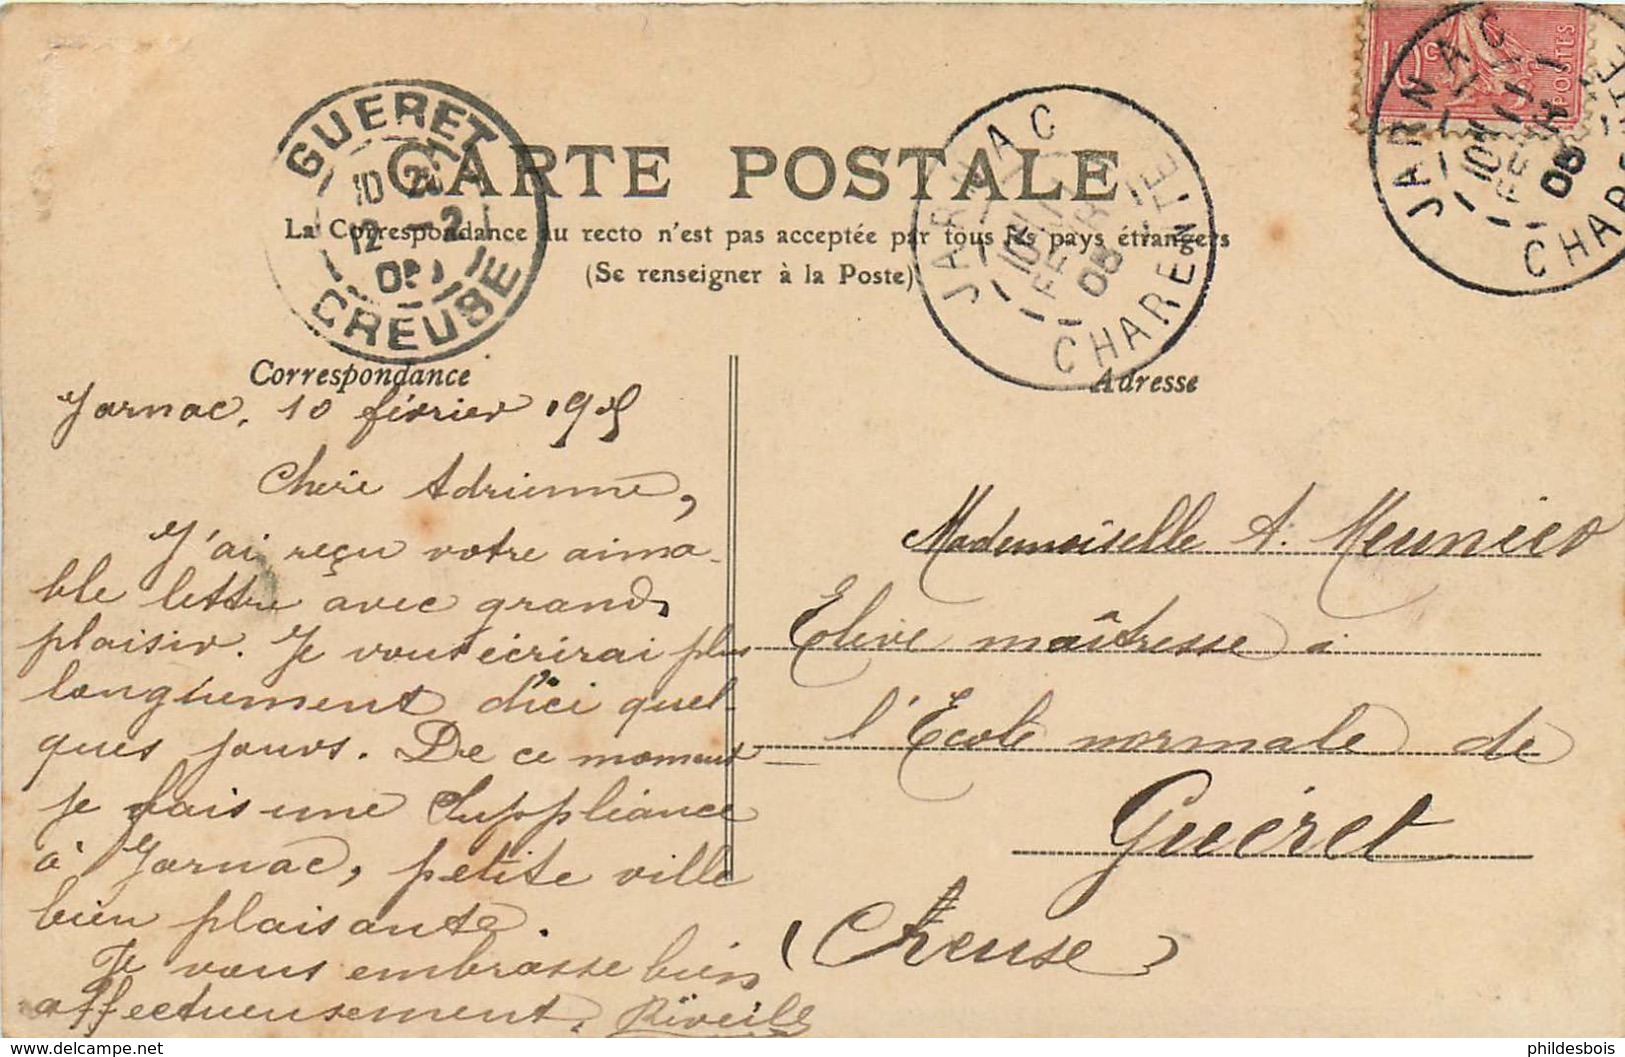 CARTE POSTALE
La Correspondance au recto n'est pas acceptée par tous les pays étrangers
(Se renseigner à la Poste)
GUERET
10
12 -2
05
CREUSE
JARNAC
10
FEVR
05
CHARENTE
JARNAC
10
FEVR
05
CHARENTE
10c
POSTES
Correspondance
Jarnac, 10 février 1905
Chère Adrienne,
J'ai reçu votre aima-
ble lettre avec grand
plaisir. Je vous écrirai plus
longuement d'ici quel-
ques jours. De ce moment
je fais une Suppléance
à Jarnac, petite ville
bien plaisante.
Je vous embrasse bien
affectueusement.
Adresse
Mademoiselle A. Meunier
Elève maîtresse à
l'Ecole normale de
Guéret
(Creuse)
phildesbois
https://www.delcampe.net